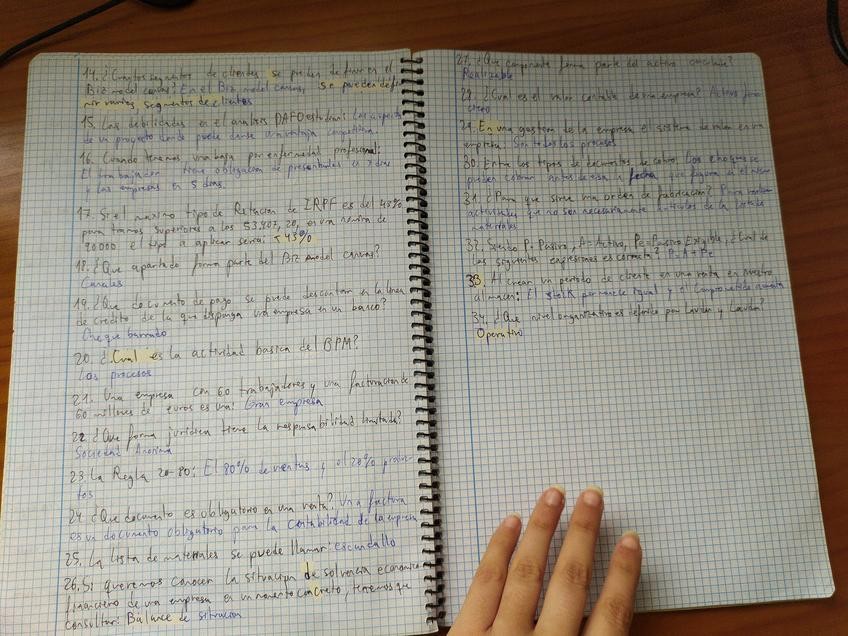 14. ¿Cuantos segmentos de clientes se pueden definir en el
Biz model canvas? En el Biz model canvas, se pueden defi-
nir varios segmentos de clientes
15. Las debilidades en el analisis DAFO estudian: Los aspectos
de un proyecto donde puede darse una ventaja competitiva.
16. Cuando tenemos una baja por enfermedad profesional:
El trabajador tiene obligacion de presentarla en 3 dias
y las empresas en 5 dias.
17. Si el maximo tipo de Retencion de IRPF es del 45%
para tramos superiores a los 53.407, 20, en una nomina de
90000 el tipo a aplicar seria: < 45%
18. ¿Que apartado forma parte del Biz model canvas?
Canales
19. ¿Que documento de pago se puede descontar en la linea
de credito de la que disponga una empresa en un banco?
Cheque barrado
20. ¿Cual es la actividad basica del BPM?
Los procesos
21. Una empresa con 60 trabajadores y una facturacion de
60 millones de euros es una: Gran empresa
22. ¿Que forma juridica tiene la responsabilidad limitada?
Sociedad Anonima
23. La Regla 20-80: El 80% de ventas y el 20% produc-
tos
24 ¿Que documento es obligatorio en una venta? Una factura
es un documento obligatorio para la contabilidad de la empresa
25. La lista de materiales se puede llamar: escandallo
26. Si queremos conocer la situacion de solvencia economica
financiero de una empresa en un momento concreto, tenemos que
consultar: Balance de situacion
27. ¿Que componente forma parte del activo circulante?
Realizable
28. ¿Cual es el valor contable de una empresa? Activo
29. En una gestion de la empresa el sistema de valor en una
empresa: Son todos los procesos
30. Entre los tipos de documentos de cobro. Los cheques se
pueden cobrar antes de esa fecha que figura en el mismo
31. ¿Para que sirve una orden de fabricacion? Para realizar
actividades que no son necesariamente articulos de la lista de
materiales
32. Siendo P=Pasivo, A=Activo, Pe=Pasivo Exigible, ¿Cual de
las siguientes expresiones es correcta? P=A+Pe
33. Al crear un pedido de cliente en una venta en nuestro
almacen: El stock permanece igual y el comprometido aumenta
34. ¿Que nivel organizativo es definido por Laudon y Laudon?
Operativo